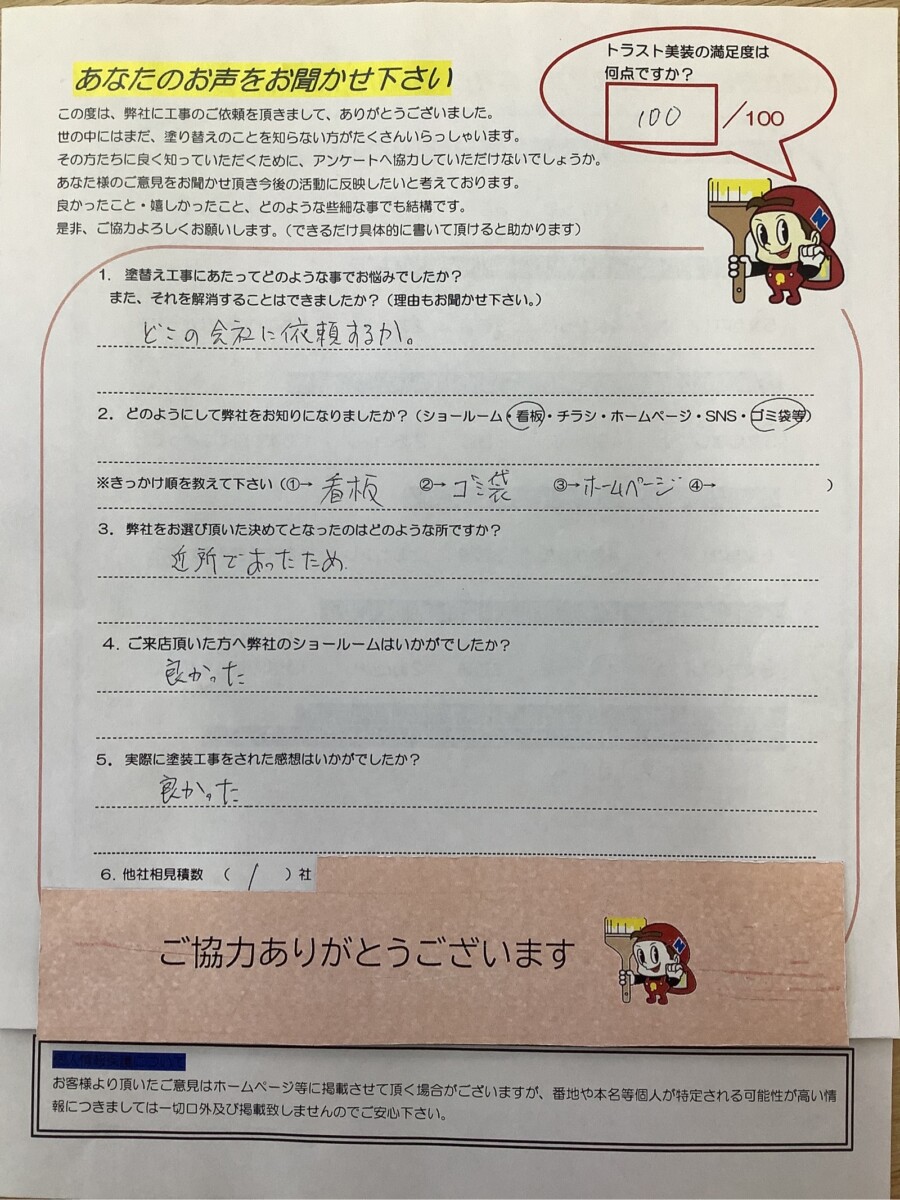 あなたのお声をお聞かせ下さい
トラスト美装の満足度は
何点ですか？
100 ／100
この度は、弊社に工事のご依頼を頂きまして、ありがとうございました。
世の中にはまだ、塗り替えのことを知らない方がたくさんいらっしゃいます。
その方たちに良く知っていただくために、アンケートへ協力していただけないでしょうか。
あなた様のご意見をお聞かせ頂き今後の活動に反映したいと考えております。
良かったこと・嬉しかったこと、どのような些細な事でも結構です。
是非、ご協力よろしくお願いします。（できるだけ具体的に書いて頂けると助かります）
1．塗替え工事にあたってどのような事でお悩みでしたか？
また、それを解消することはできましたか？（理由もお聞かせ下さい。）
どこの会社に依頼するか。
2．どのようにして弊社をお知りになりましたか？（ショールーム・看板・チラシ・ホームページ・SNS・ゴミ袋等）
※きっかけ順を教えて下さい（①→ 看板 ②→ ゴミ袋 ③→ホームページ ④→ ）
3．弊社をお選び頂いた決めてとなったのはどのような所ですか？
近所であったため.
4．ご来店頂いた方へ弊社のショールームはいかがでしたか？
良かった
5．実際に塗装工事をされた感想はいかがでしたか？
良かった
6．他社相見積数 （ 1 ）社
ご協力ありがとうございます
個人情報保護について
お客様より頂いたご意見はホームページ等に掲載させて頂く場合がございますが、番地や本名等個人が特定される可能性が高い情
報につきましては一切口外及び掲載致しませんのでご安心下さい。